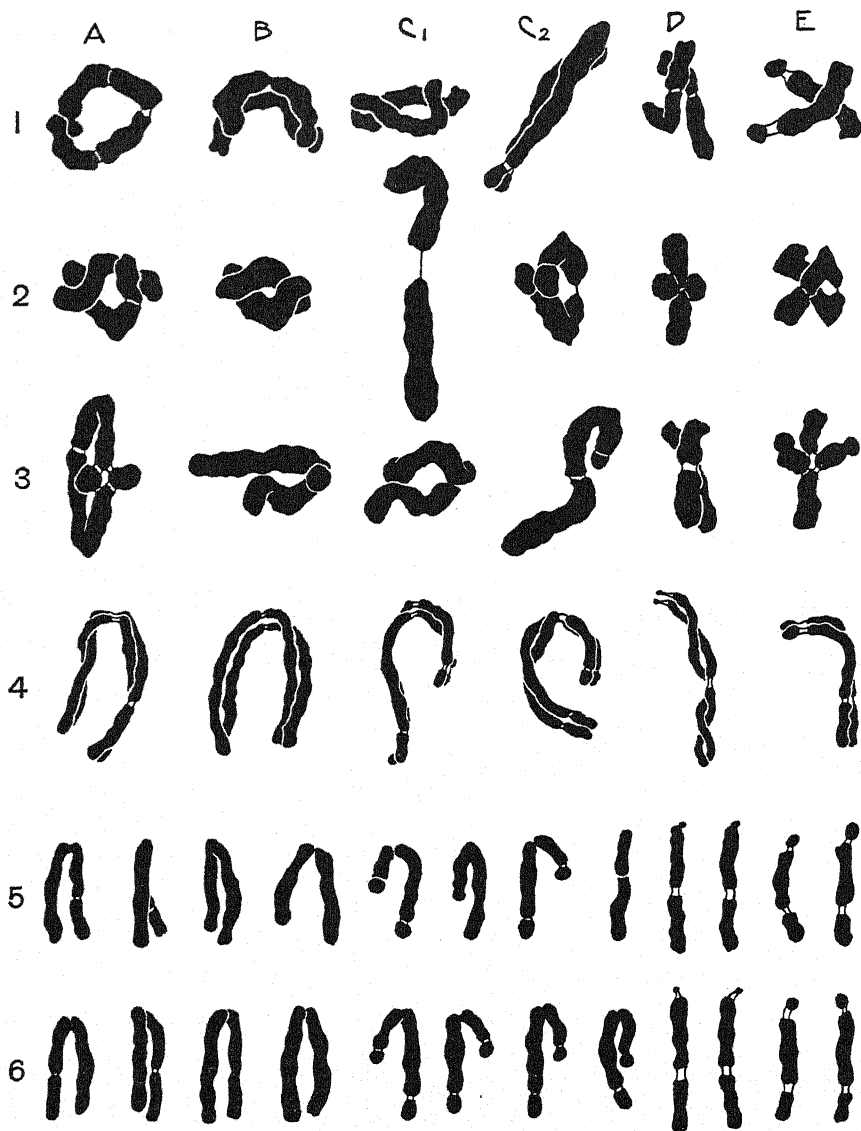 A B C₁ C₂ D E
1
2
3
4
5
6